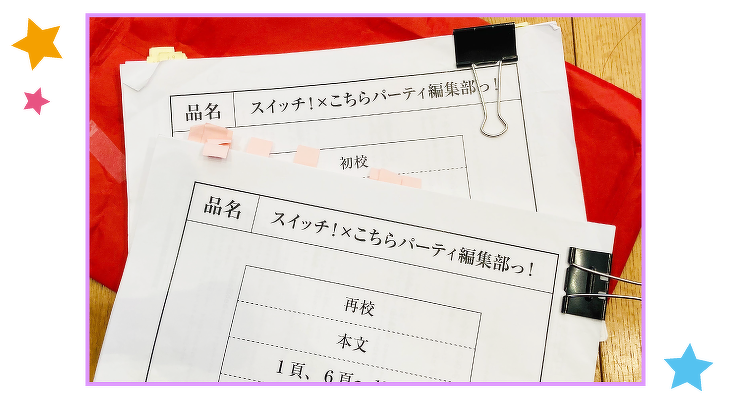 品名 スイッチ!×こちらパーティ編集部っ!
初校
品名 スイッチ!×こちらパーティ編集部っ!
再校
本文
1頁、6頁〜